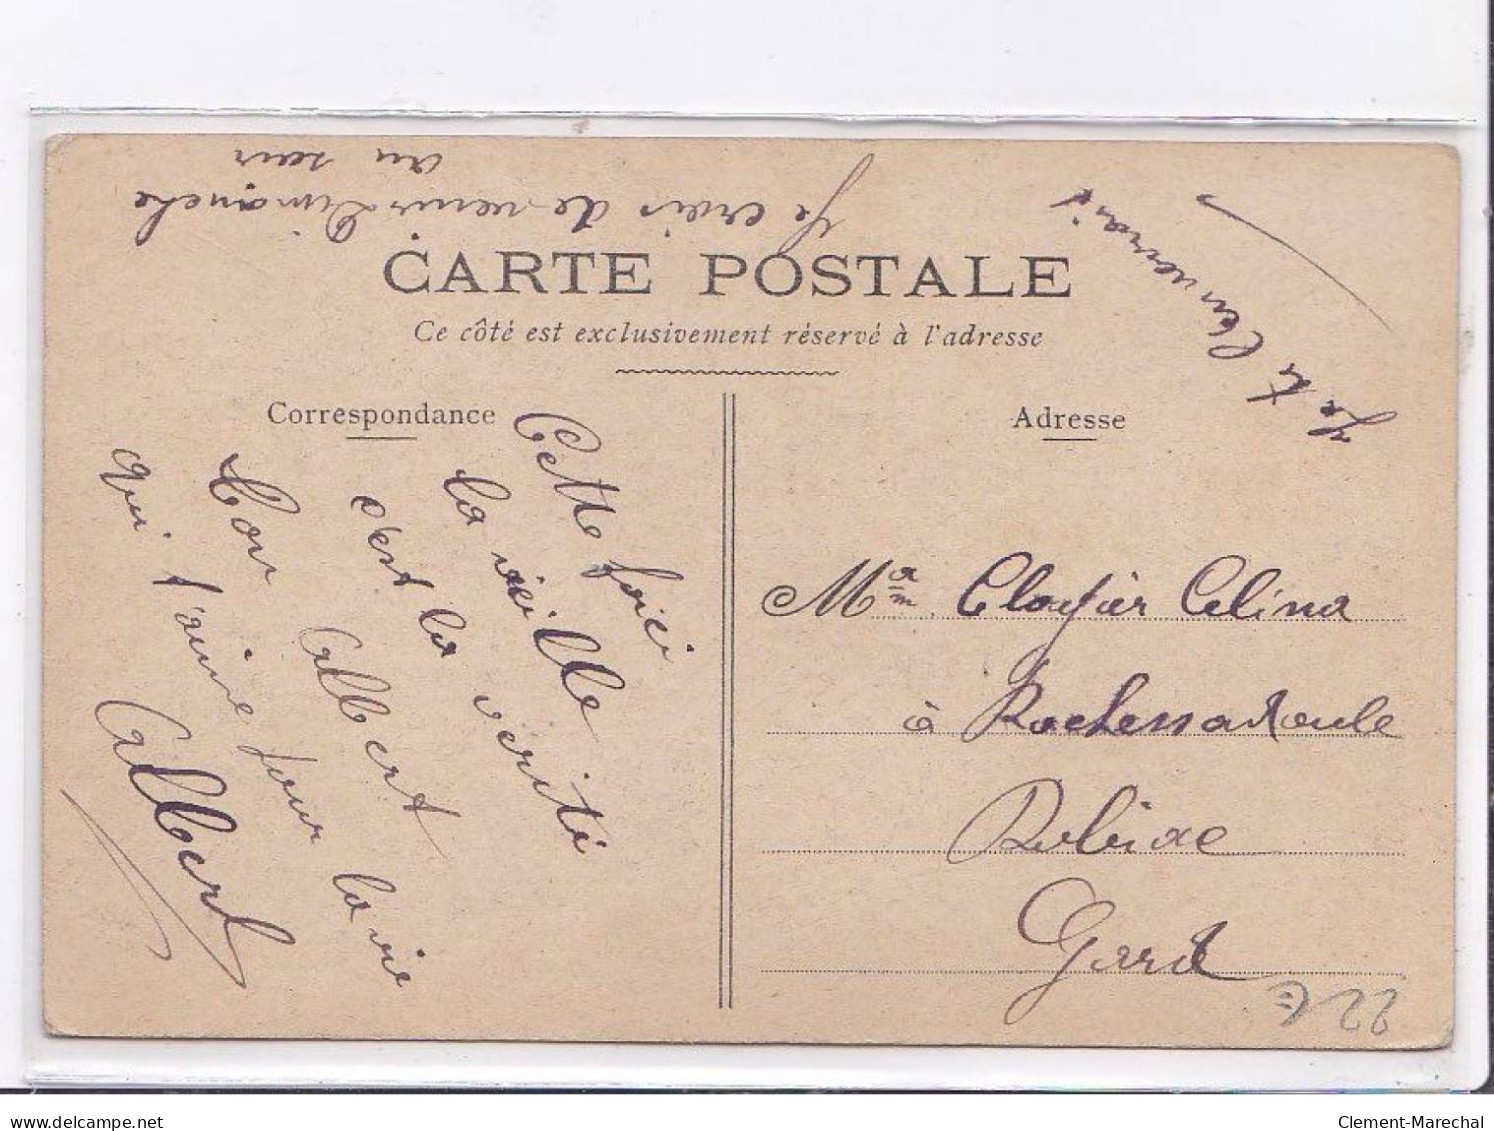 Je crois de venir Dimanche
au soir
Je te l'enverrait
CARTE POSTALE
Ce côté est exclusivement réservé à l'adresse
Correspondance
Adresse
Cette foici
la vieille
c'est la vérité
Ton Albert
qui t'aime pour la vie
Albert
Celina
à Rochessadoule
Robiac
Gard
22€
www.delcampe.net
Clement-Marechal